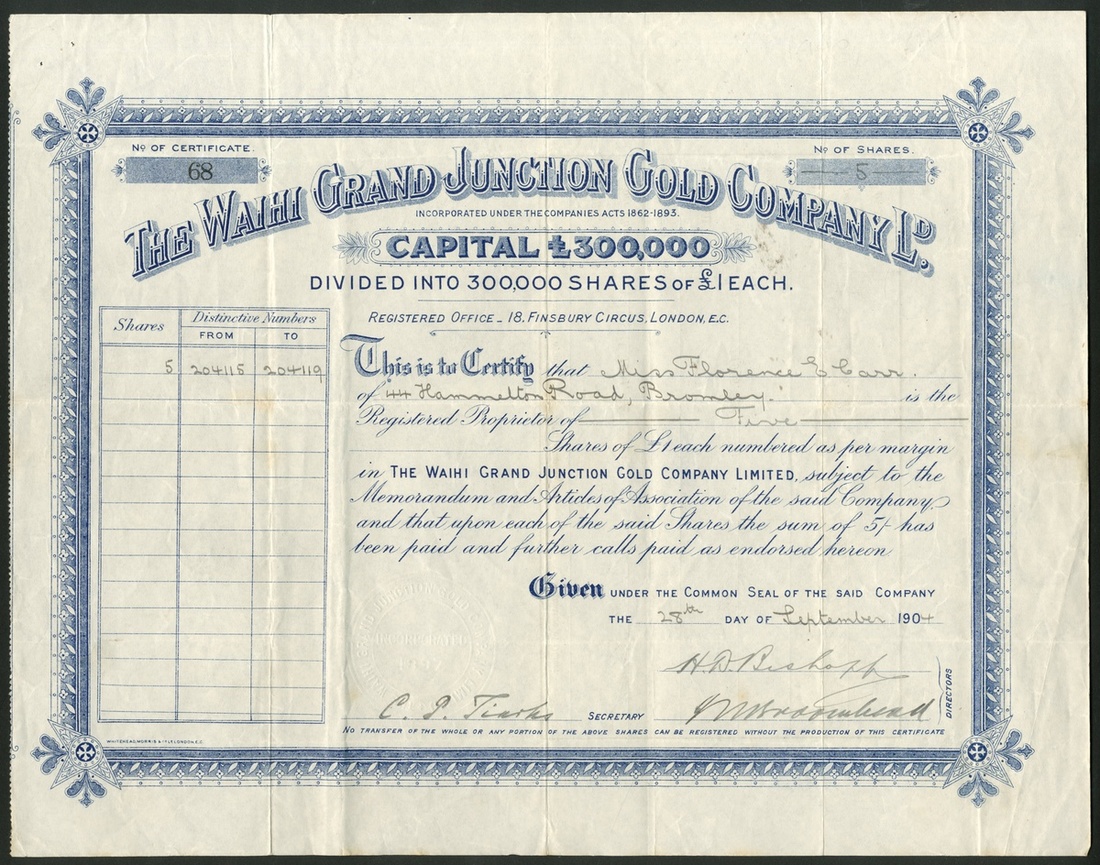 No OF CERTIFICATE.
68
No OF SHARES.
5
THE WAIHI GRAND JUNCTION GOLD COMPANY LD.
INCORPORATED UNDER THE COMPANIES ACTS 1862-1893.
CAPITAL £300,000
DIVIDED INTO 300,000 SHARES OF £1 EACH.
REGISTERED OFFICE _ 18, FINSBURY CIRCUS, LONDON, E.C.
Shares Distinctive Numbers
FROM TO
5 204115 204119
This is to Certify that Miss Florence E Carr.
of 44 Hammelton Road, Bromley. is the
Registered Proprietor of Five
Shares of £1 each numbered as per margin
in THE WAIHI GRAND JUNCTION GOLD COMPANY LIMITED, subject to the
Memorandum and Articles of Association of the said Company,
and that upon each of the said Shares the sum of 5/- has
been paid and further calls paid as endorsed hereon
Given UNDER THE COMMON SEAL OF THE SAID COMPANY
THE 28th DAY OF September 1904
H.D. Bishopp
C. D. Tiarks SECRETARY
DIRECTORS
NO TRANSFER OF THE WHOLE OR ANY PORTION OF THE ABOVE SHARES CAN BE REGISTERED WITHOUT THE PRODUCTION OF THIS CERTIFICATE